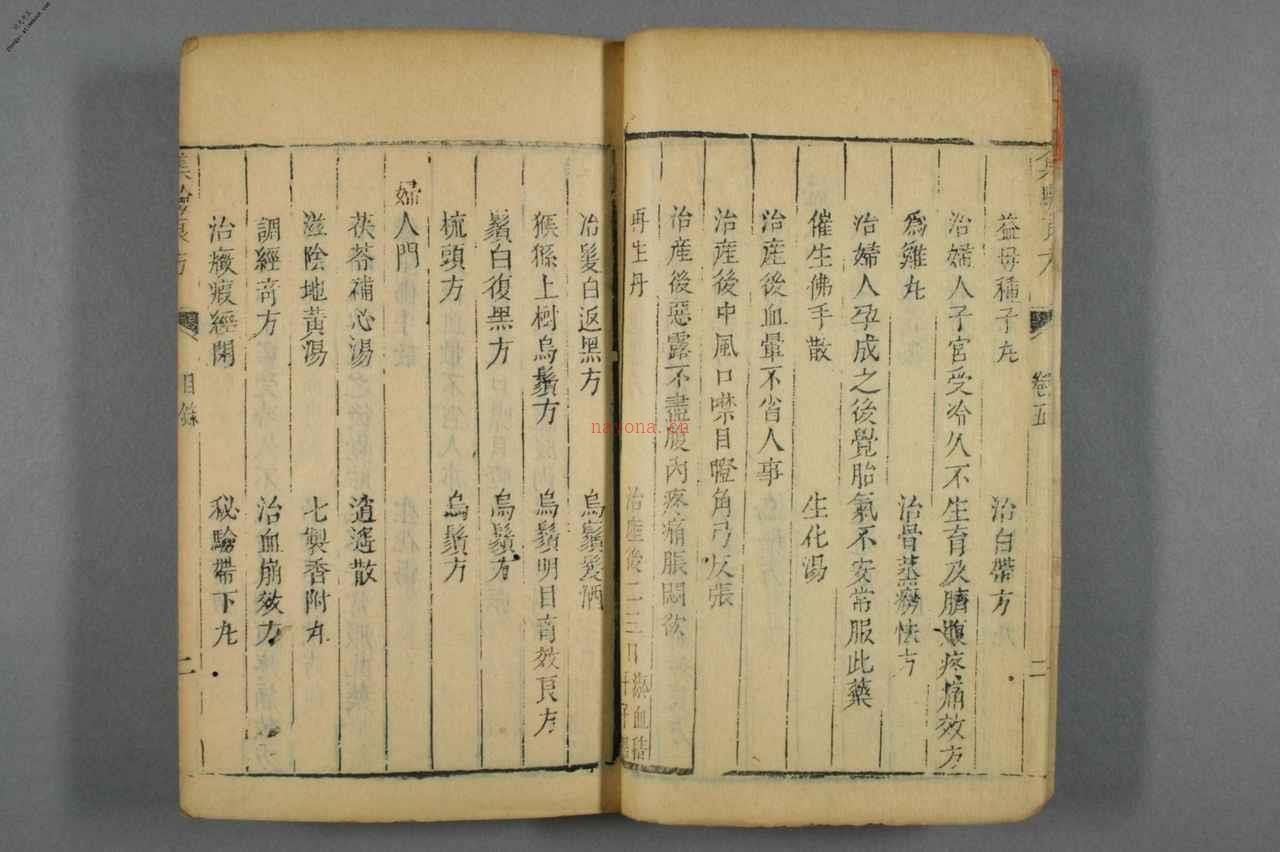 卷五 二
益母種子丸 治白帶方
治婦人子宮受冷久不生育及臍腹疼痛效方
為雞丸 治骨蒸癆怯方
治婦人孕成之後覺胎氣不安常服此藥
催生佛手散 生化湯
治產後血暈不省人事
治產後中風口噤目瞪角弓反張
治產後惡露不盡腹內疼痛脹悶欲
再生丹 治產後二三日瘀血
治髮白返黑方 烏鬚髮酒
猴猻上樹烏鬚方 烏鬚明目奇效良方
鬚白復黑方 烏鬚方
梳頭方 烏鬚方
婦人門
茯苓補心湯 逍遙散
滋陰地黃湯 七製香附丸
調經奇方 治血崩效方
治癥瘕經閉 秘驗帶下丸
集驗良方 目錄 二
nayona.cn